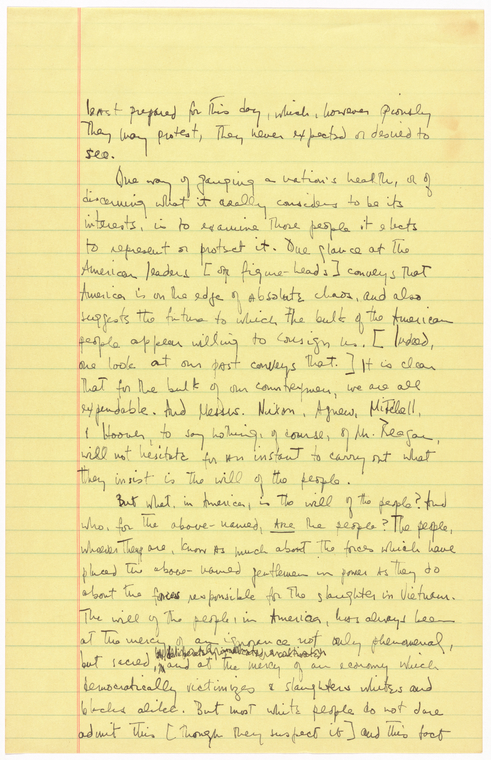 least prepared for this day, which, however piously
they may protest, they never expected or desired to
see.
One way of gauging a nation's health, or of
discerning what it really considers to be its
interests, is to examine those people it elects
to represent or protect it. One glance at the
American leaders [or figure-heads] conveys that
America is on the edge of absolute chaos, and also
suggests the future to which the bulk of the American
people appear willing to consign us. [Indeed,
one look at our past conveys that.] It is clear
that for the bulk of our countrymen, we are all
expendable. And Messrs. Nixon, Agnew, Mitchell,
& Hoover, to say nothing, of course, of Mr. Reagan,
will not hesitate for an instant to carry out what
they insist is the will of the people.
But what, in America, is the will of the people? And
who, for the above-named, are the people? The people,
whoever they are, know as much about the forces which have
placed the above-named gentlemen in power as they do
about the forces responsible for the slaughter in Vietnam.
The will of the people, in America, has always been
at the mercy of an ignorance not only phenomenal,
but sacred, and at the mercy of an economy which
democratically victimizes & slaughters whites and
blacks alike. But most white people do not dare
admit this [though they suspect it] and this fact